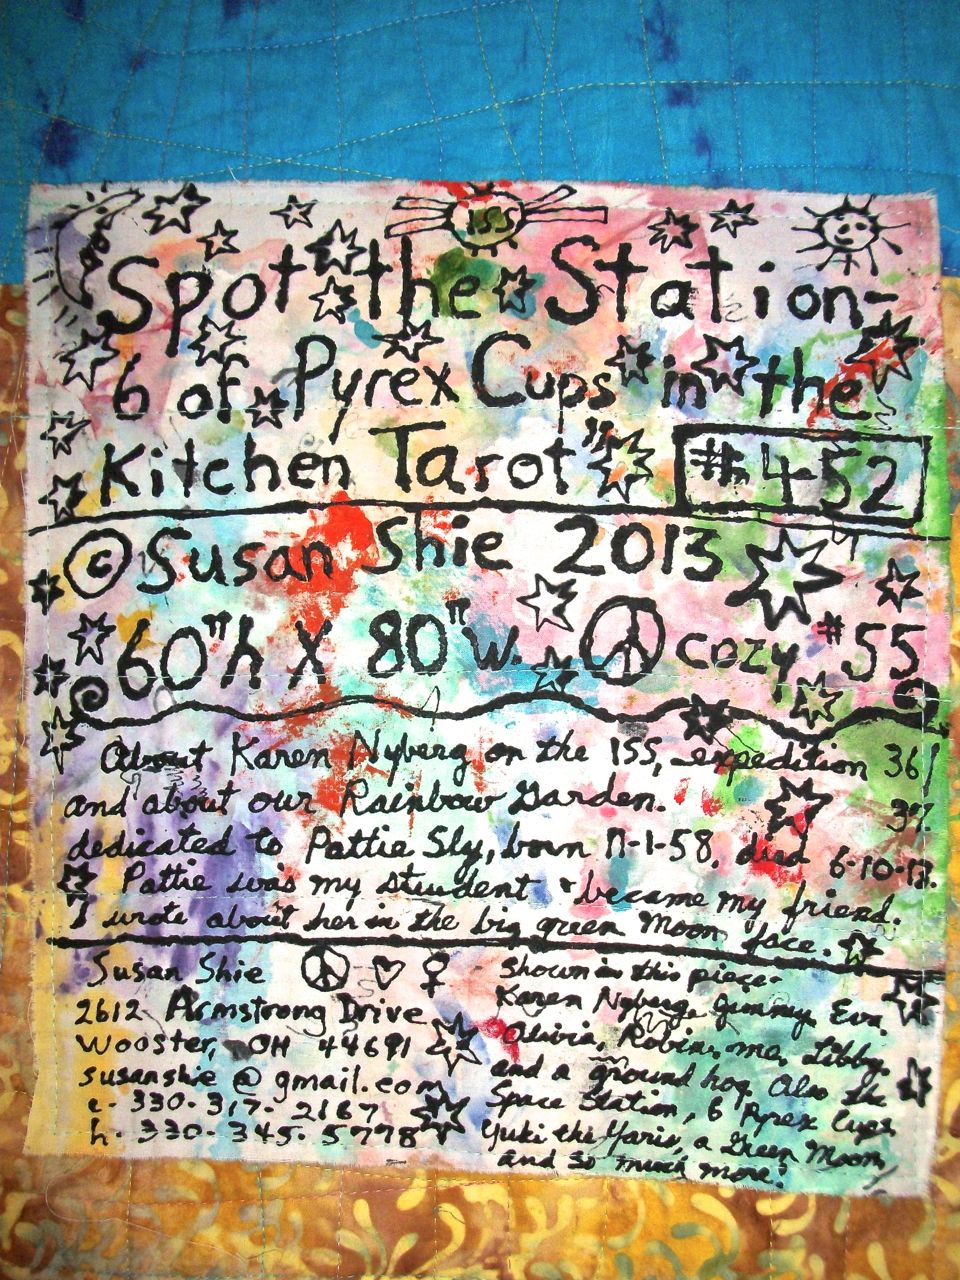 ISS
Spot the Station-
6 of Pyrex Cups in the
Kitchen Tarot"
#452
© Susan Shie 2013
60"h X 80"w. cozy #55
About Karen Nyberg on the ISS, expedition 36/
and about our Rainbow Garden. 37.
dedicated to Pattie Sly, born 11-1-58, died 6-10-13.
Pattie was my student & became my friend.
I wrote about her in the big green Moon face.
Susan Shie
2612 Armstrong Drive
Wooster, OH 44691
susanshie@gmail.com
c- 330-317-2167
h- 330-345-5778
Shown in this piece-
Karen Nyberg, Jimmy, Eva,
Olivia, Robin, me, Libby,
and a ground hog. Also the
Space Station, 6 Pyrex Cups,
Yuki the Yaris, a Green Moon,
and so much more!